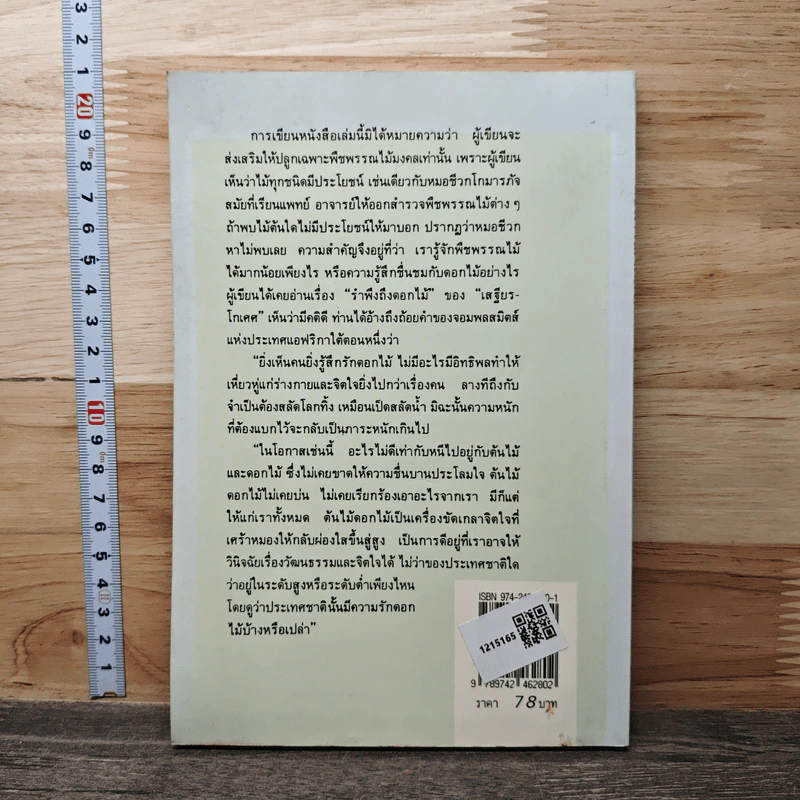 การเขียนหนังสือเล่มนี้มิได้หมายความว่า ผู้เขียนจะ
ส่งเสริมให้ปลูกเฉพาะพืชพรรณไม้มงคลเท่านั้น เพราะผู้เขียน
เห็นว่าไม้ทุกชนิดมีประโยชน์ เช่นเดียวกับหมอชีวกโกมารภัจ
สมัยที่เรียนแพทย์ อาจารย์ให้ออกสำรวจพืชพรรณไม้ต่าง ๆ
ถ้าพบไม้ต้นใดไม่มีประโยชน์ให้มาบอก ปรากฏว่าหมอชีวก
หาไม่พบเลย ความสำคัญจึงอยู่ที่ว่า เรารู้จักพืชพรรณไม้
ได้มากน้อยเพียงไร หรือความรู้สึกชื่นชมกับดอกไม้อย่างไร
ผู้เขียนได้เคยอ่านเรื่อง “รำพึงถึงดอกไม้” ของ “เสฐียร-
โกเศศ” เห็นว่ามีคติดี ท่านได้อ้างถึงถ้อยคำของจอมพลสมิตส์
แห่งประเทศแอฟริกาใต้ตอนหนึ่งว่า
“ยิ่งเห็นคนยิ่งรู้สึกรักดอกไม้ ไม่มีอะไรมีอิทธิพลทำให้
เหี่ยวหู่แก่ร่างกายและจิตใจยิ่งไปกว่าเรื่องคน ลางทีถึงกับ
จำเป็นต้องสลัดโลกทิ้ง เหมือนเป็ดสลัดน้ำ มิฉะนั้นความหนัก
ที่ต้องแบกไว้จะกลับเป็นภาระหนักเกินไป
“ในโอกาสเช่นนี้ อะไรไม่ดีเท่ากับหนีไปอยู่กับต้นไม้
และดอกไม้ ซึ่งไม่เคยขาดให้ความชื่นบานประโลมใจ ต้นไม้
ดอกไม้ไม่เคยบ่น ไม่เคยเรียกร้องเอาอะไรจากเรา มีก็แต่
ให้แก่เราทั้งหมด ต้นไม้ดอกไม้เป็นเครื่องขัดเกลาจิตใจที่
เศร้าหมองให้กลับผ่องใสขึ้นสู่สูง เป็นการดีอยู่ที่เราอาจให้
วินิจฉัยเรื่องวัฒนธรรมและจิตใจได้ ไม่ว่าของประเทศชาติใด
ว่าอยู่ในระดับสูงหรือระดับต่ำเพียงไหน
โดยดูว่าประเทศชาตินั้นมีความรักดอก
ไม้บ้างหรือเปล่า”
ISBN 974-24
0-1
1215165
9 789742 462802
ราคา 78 บาท
3
2
1
20
9
8
7
6
5
4
3
2
1
10
9
8
7
6
5
4
3
2
1